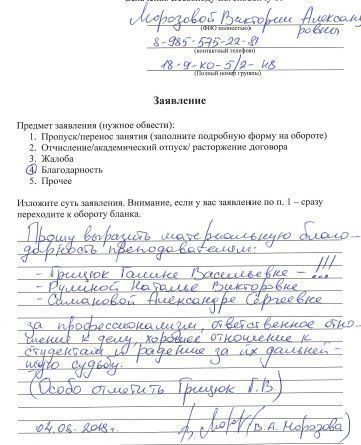 Морозовой Виктории Александ
ровны
(ФИО полностью)
8-985-575-22-81
(контактный телефон)
18-9-КО-5/2-48
(Полный номер группы)
Заявление
Предмет заявления (нужное обвести):
1. Пропуск/перенос занятия (заполните подробную форму на обороте)
2. Отчисление/академический отпуск/ расторжение договора
3. Жалоба
4. Благодарность
5. Прочее
Изложите суть заявления. Внимание, если у вас заявление по п. 1 – сразу
переходите к обороту бланка.
Прошу выразить материальную благо-
дарность преподавателям:
- Грицюк Галине Васильевне - !!!
- Руминой Наталье Викторовне
- Симановой Александре Сергеевне
за профессионализм, ответственное отно-
шение к делу, хорошее отношение к
студентам и радение за их дальней-
шую судьбу.
(Особо отметить Грицюк Г.В)
04.08.2018г.
(В.А. Морозова)